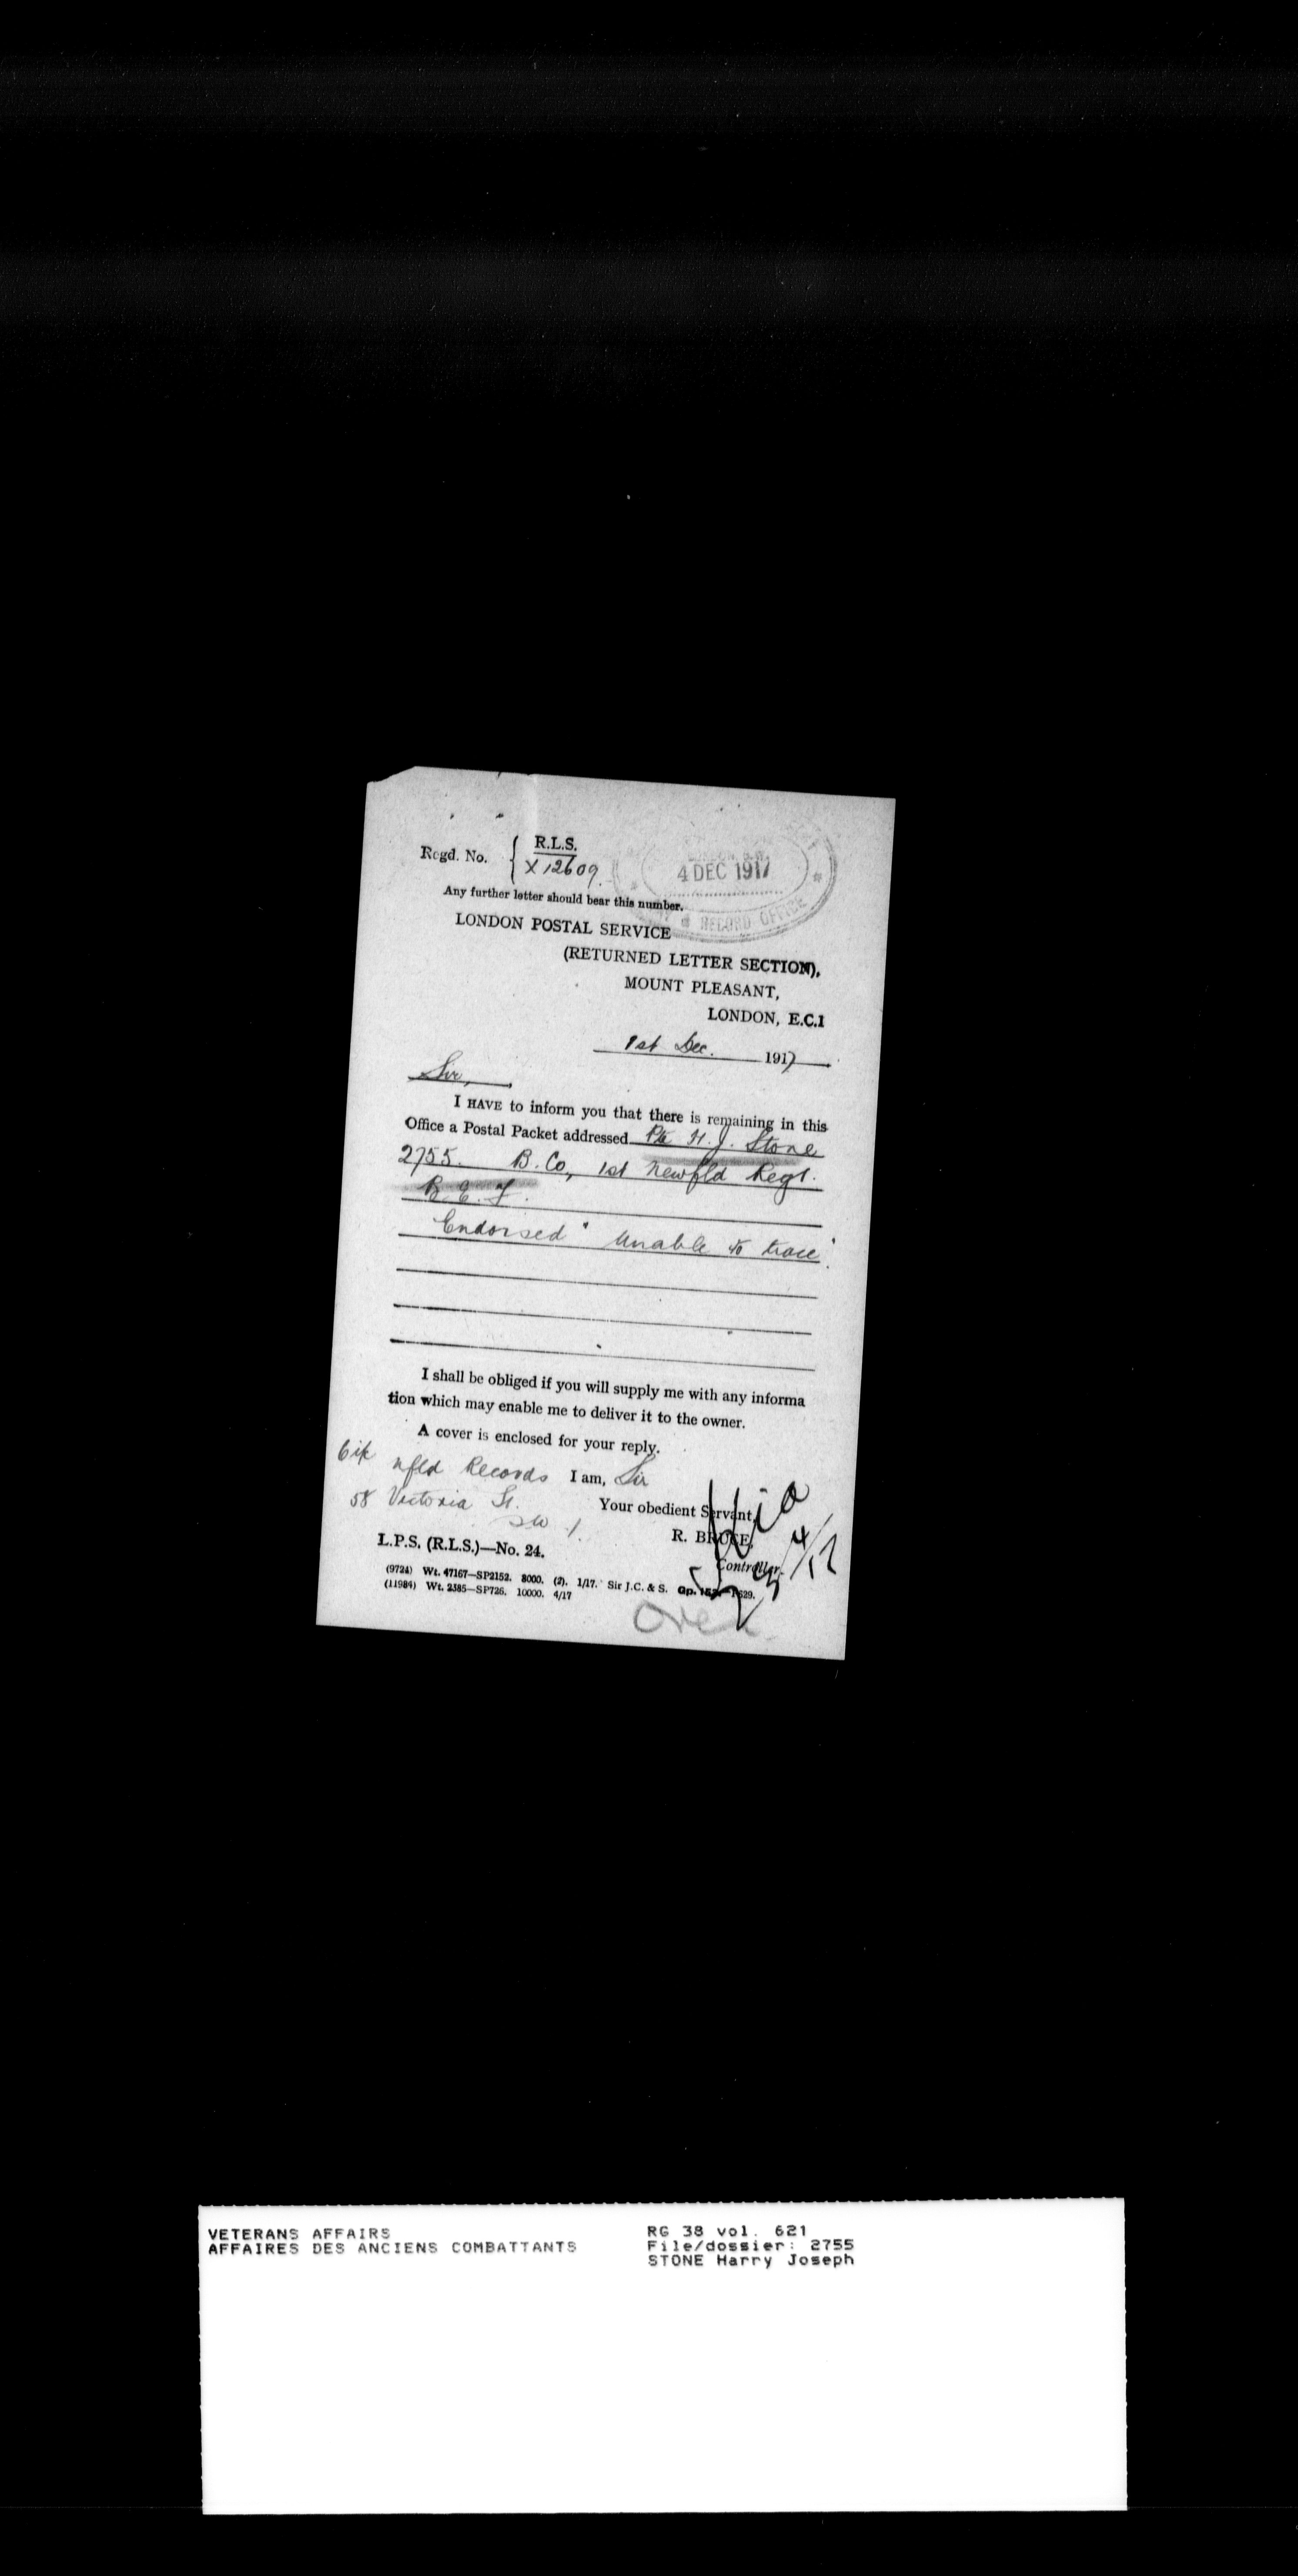 Regd. No. { R.L.S.
X 12609.
4 DEC 1917
RECORD OFFICE
Any further letter should bear this number.
LONDON POSTAL SERVICE
(RETURNED LETTER SECTION),
MOUNT PLEASANT,
LONDON, E.C.1
1st Dec. 1917
Sir,
I HAVE to inform you that there is remaining in this
Office a Postal Packet addressed Pte H. J. Stone
2755. B. Co, 1st Newfld Regt.
B. E. F.
Endorsed "Unable to trace".
I shall be obliged if you will supply me with any informa
tion which may enable me to deliver it to the owner.
A cover is enclosed for your reply.
Nfld Records I am, Sir
58 Victoria St. Your obedient Servant,
SW 1. R. BRUCE,
L.P.S. (R.L.S.)—No. 24. Controller.
(9724) Wt. 47167—SP2152. 8000. (2). 1/17. Sir J.C. & S. Gp.
(11984) Wt. 2385—SP726. 10000. 4/17
Over
VETERANS AFFAIRS
AFFAIRES DES ANCIENS COMBATTANTS
RG 38 vol. 621
File/dossier: 2755
STONE Harry Joseph